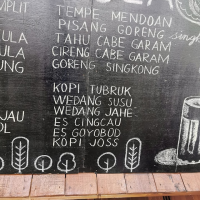 MPLIT
TEMPE MENDOAN
PISANG GORENG
TAHU CABE GARAM
CIRENG CABE GARAM
GORENG SINGKONG
ULA
ULA
UNG
KOPI TUBRUK
WEDANG SUSU
WEDANG JAHE
ES CINGCAU
ES GOYOBOD
KOPI JOSS
JAU
OL